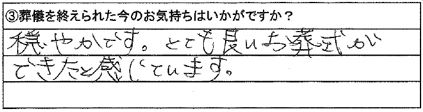 ③葬儀を終えられた今のお気持ちはいかがですか？
穏やかです。とても良いお葬式が
できたと感じています。